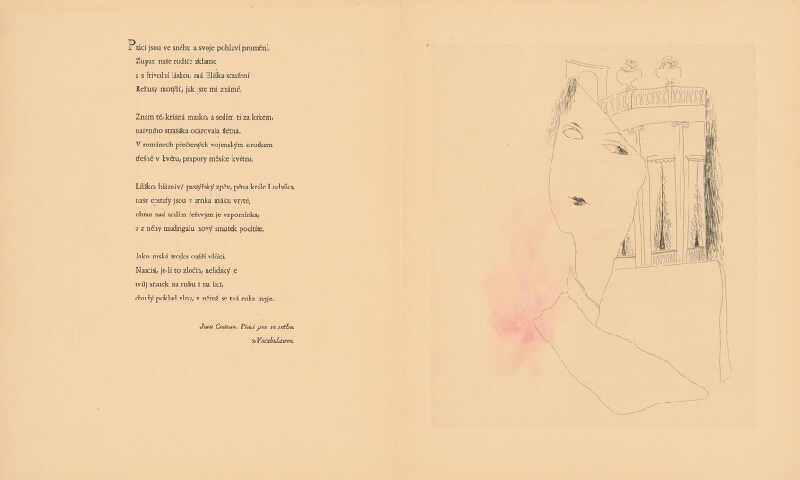 Ptáci jsou ve sněhu a svoje pohlaví promění.
Župan naše rodiče zklame
a s frivolní láskou má Eliška soužení
Rebusy motýlů, jak jste mi známé.
Znám tě, krásná masko, a sedím ti za krkem,
naivního strašáka očarovala flétna.
V románech přečtených vojenským
třešně v květu, prapory měsíce května.
Lůžko, bláznivý pastýřský zpěv, pěna krále Ludvíka,
naše epitafy jsou v zrnka máku vryté,
obraz nad vaším je vzpomínka,
a z něhy madrigalu nový smutek pocítíte.
Jako ruská trojka ozáří vlčici,
Narcisi, je-li to zločin, nelidský je
tvůj sňatek na rubu i na líci,
poklad vlny, v němž se tvá ruka myje.
Jean Cocteau: Ptáci jsou ve sněhu.
»Vocabulaire«